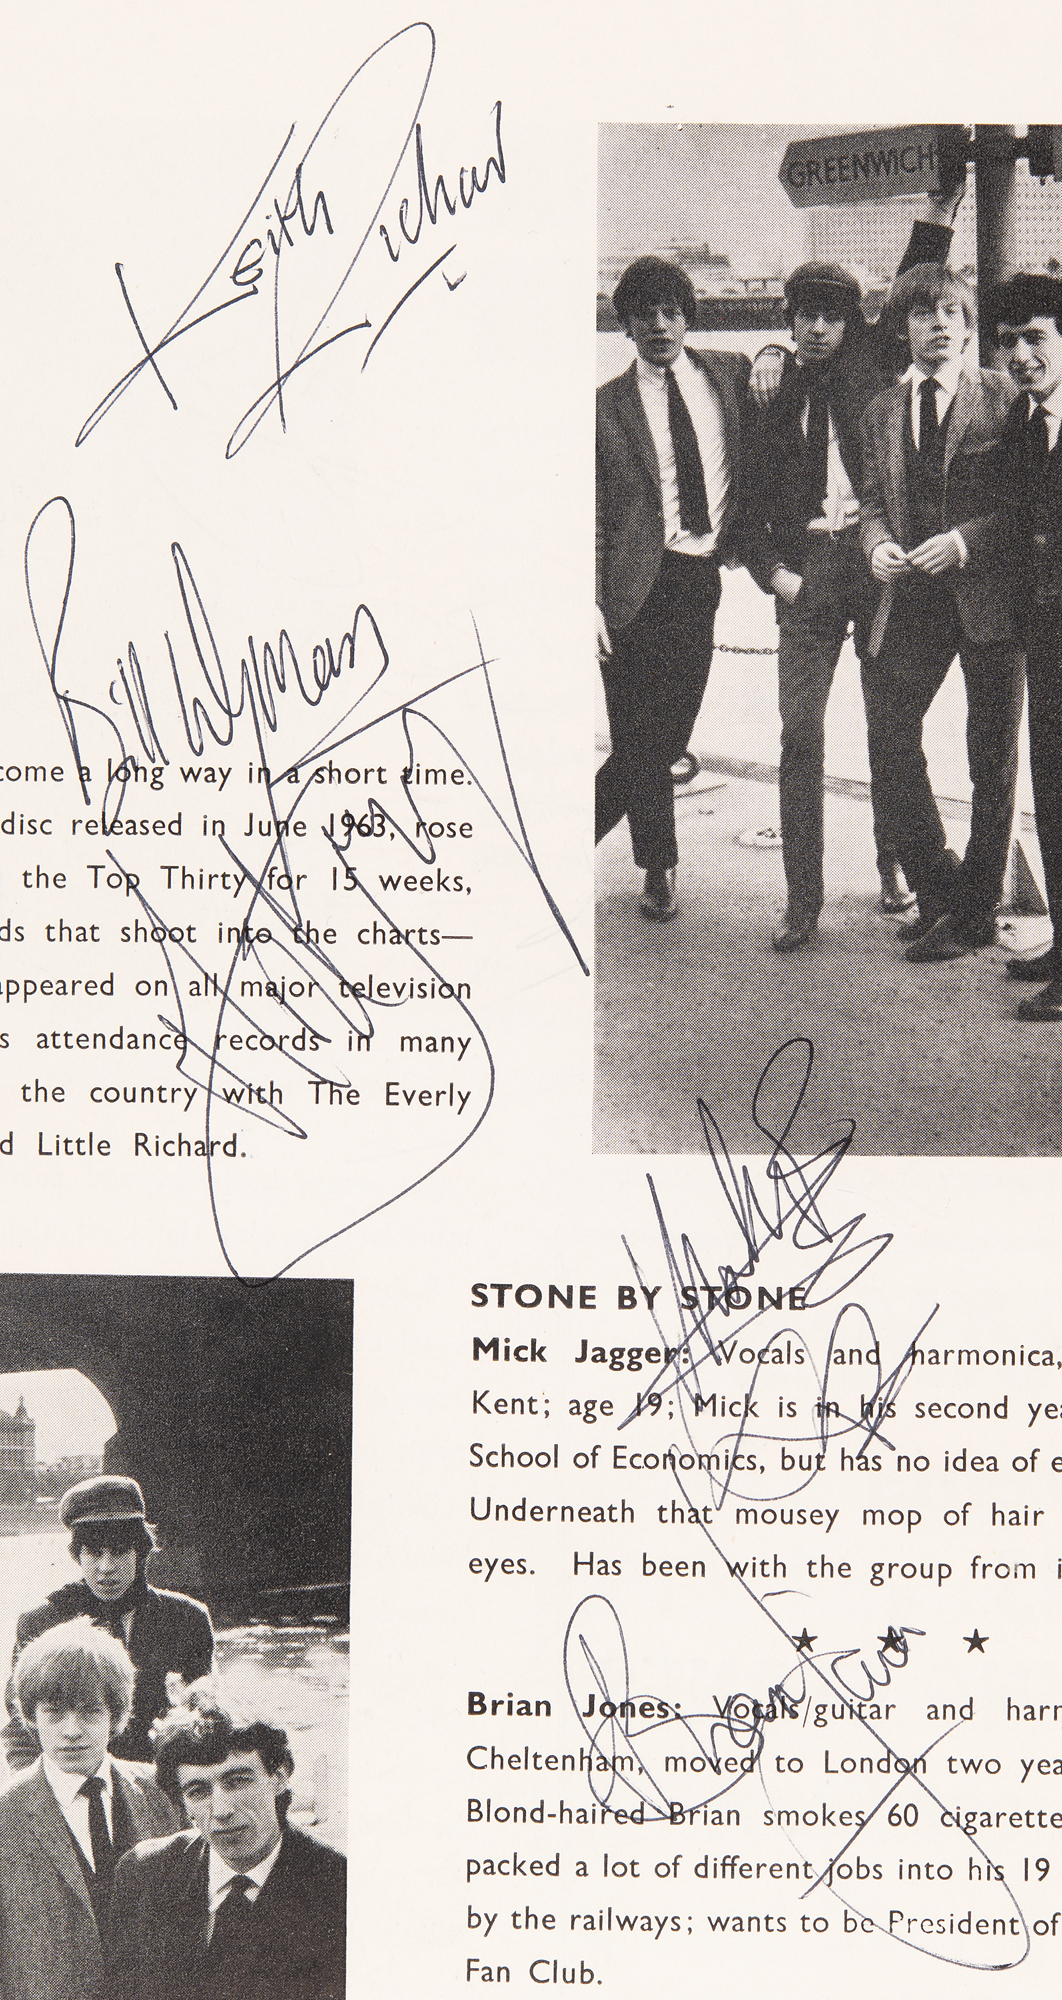 Keith Richard
GREENWICH
Bill Wyman
come a long way in a short time.
disc released in June 1963, rose
the Top Thirty for 15 weeks,
ds that shoot into the charts—
appeared on all major television
s attendance records in many
the country with The Everly
d Little Richard.
STONE BY STONE
Mick Jagger: Vocals and harmonica,
Kent; age 19; Mick is in his second yea
School of Economics, but has no idea of e
Underneath that mousey mop of hair
eyes. Has been with the group from i
★ ★ ★
Brian Jones
Brian Jones: Vocals/guitar and harm
Cheltenham, moved to London two yea
Blond-haired Brian smokes 60 cigarette
packed a lot of different jobs into his 19
by the railways; wants to be President of
Fan Club.